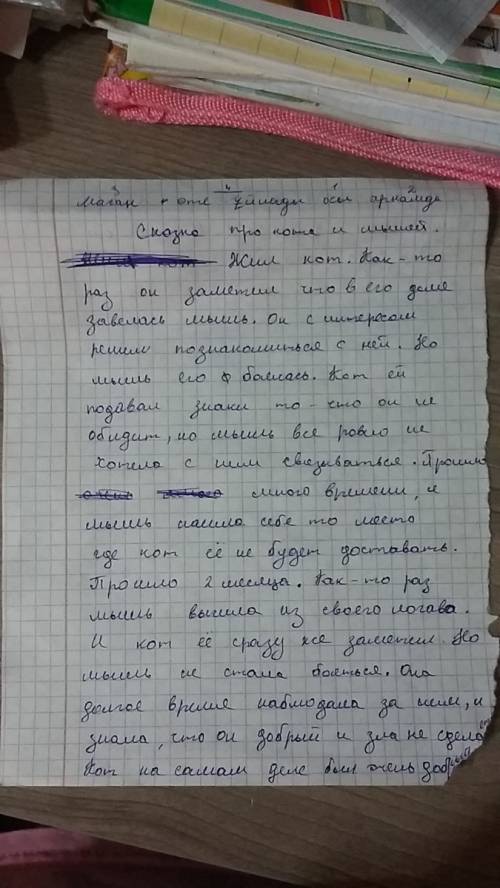 маған өте ұйнады осы арнамда
3 4 1 2
Сказка про кота и мышей.
Жил кот. Как-то
раз он заметил что в его доме
завелась мышь. Он с интересом
решил познакомиться с ней. Но
мышь его боялась. Кот ей
подавал знаки то-что он не
обидит, но мышь все ровно не
хотела с ним связываться. Прошло
много времени, и
мышь нашла себе то место
где кот её не будет доставать.
Прошло 2 месяца. Как-то раз
мышь вышла из своего логава.
И кот её сразу же заметил. Но
мышь не стала бояться. Она
долгое время наблюдала за ним, и
знала, что он добрый и зла не сдела
Кот на самам деле был очень добрый